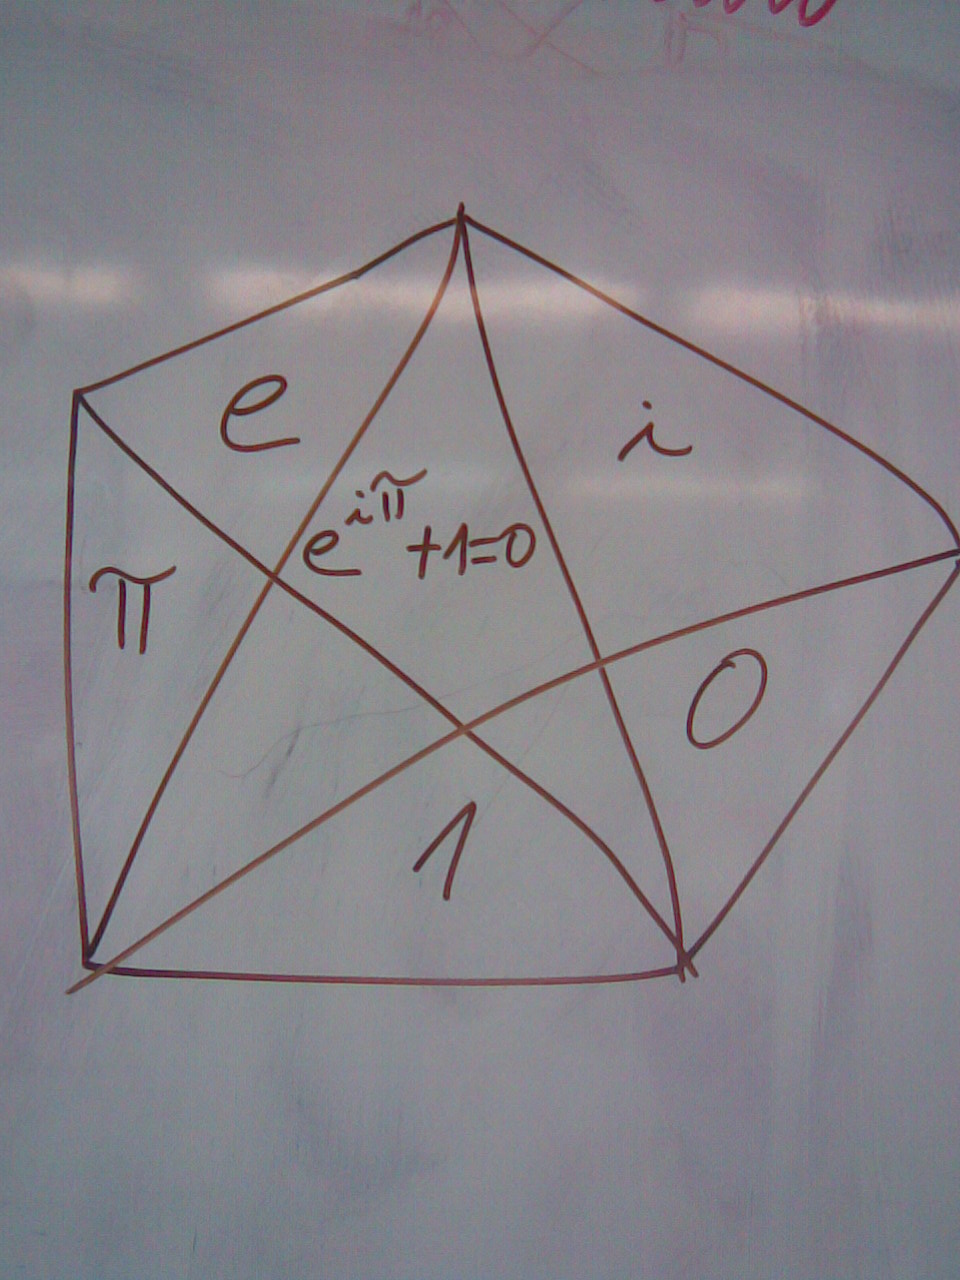 e
i
e^{iπ}+1=0
π
0
1